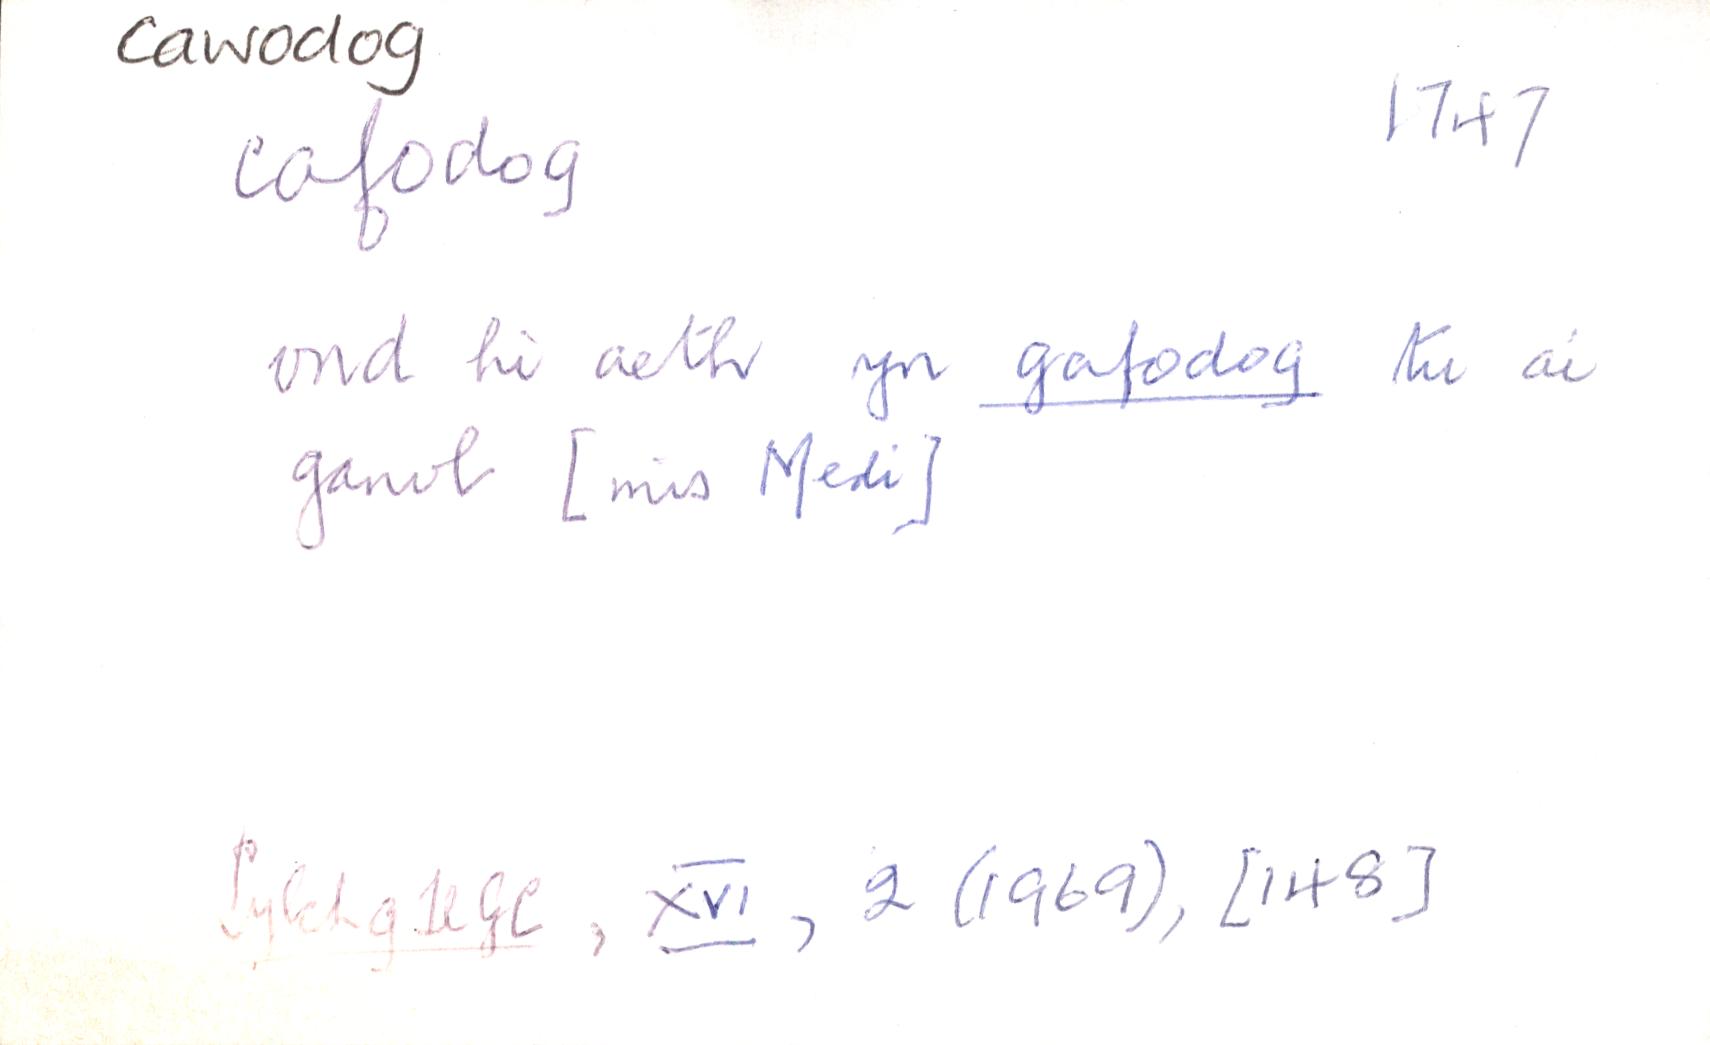 cawodog
cafodog
1747
ond hi aeth yn gafodog tu ai
ganol [mis Medi]
CylchgLlGC, XVI, 2 (1969), [148]